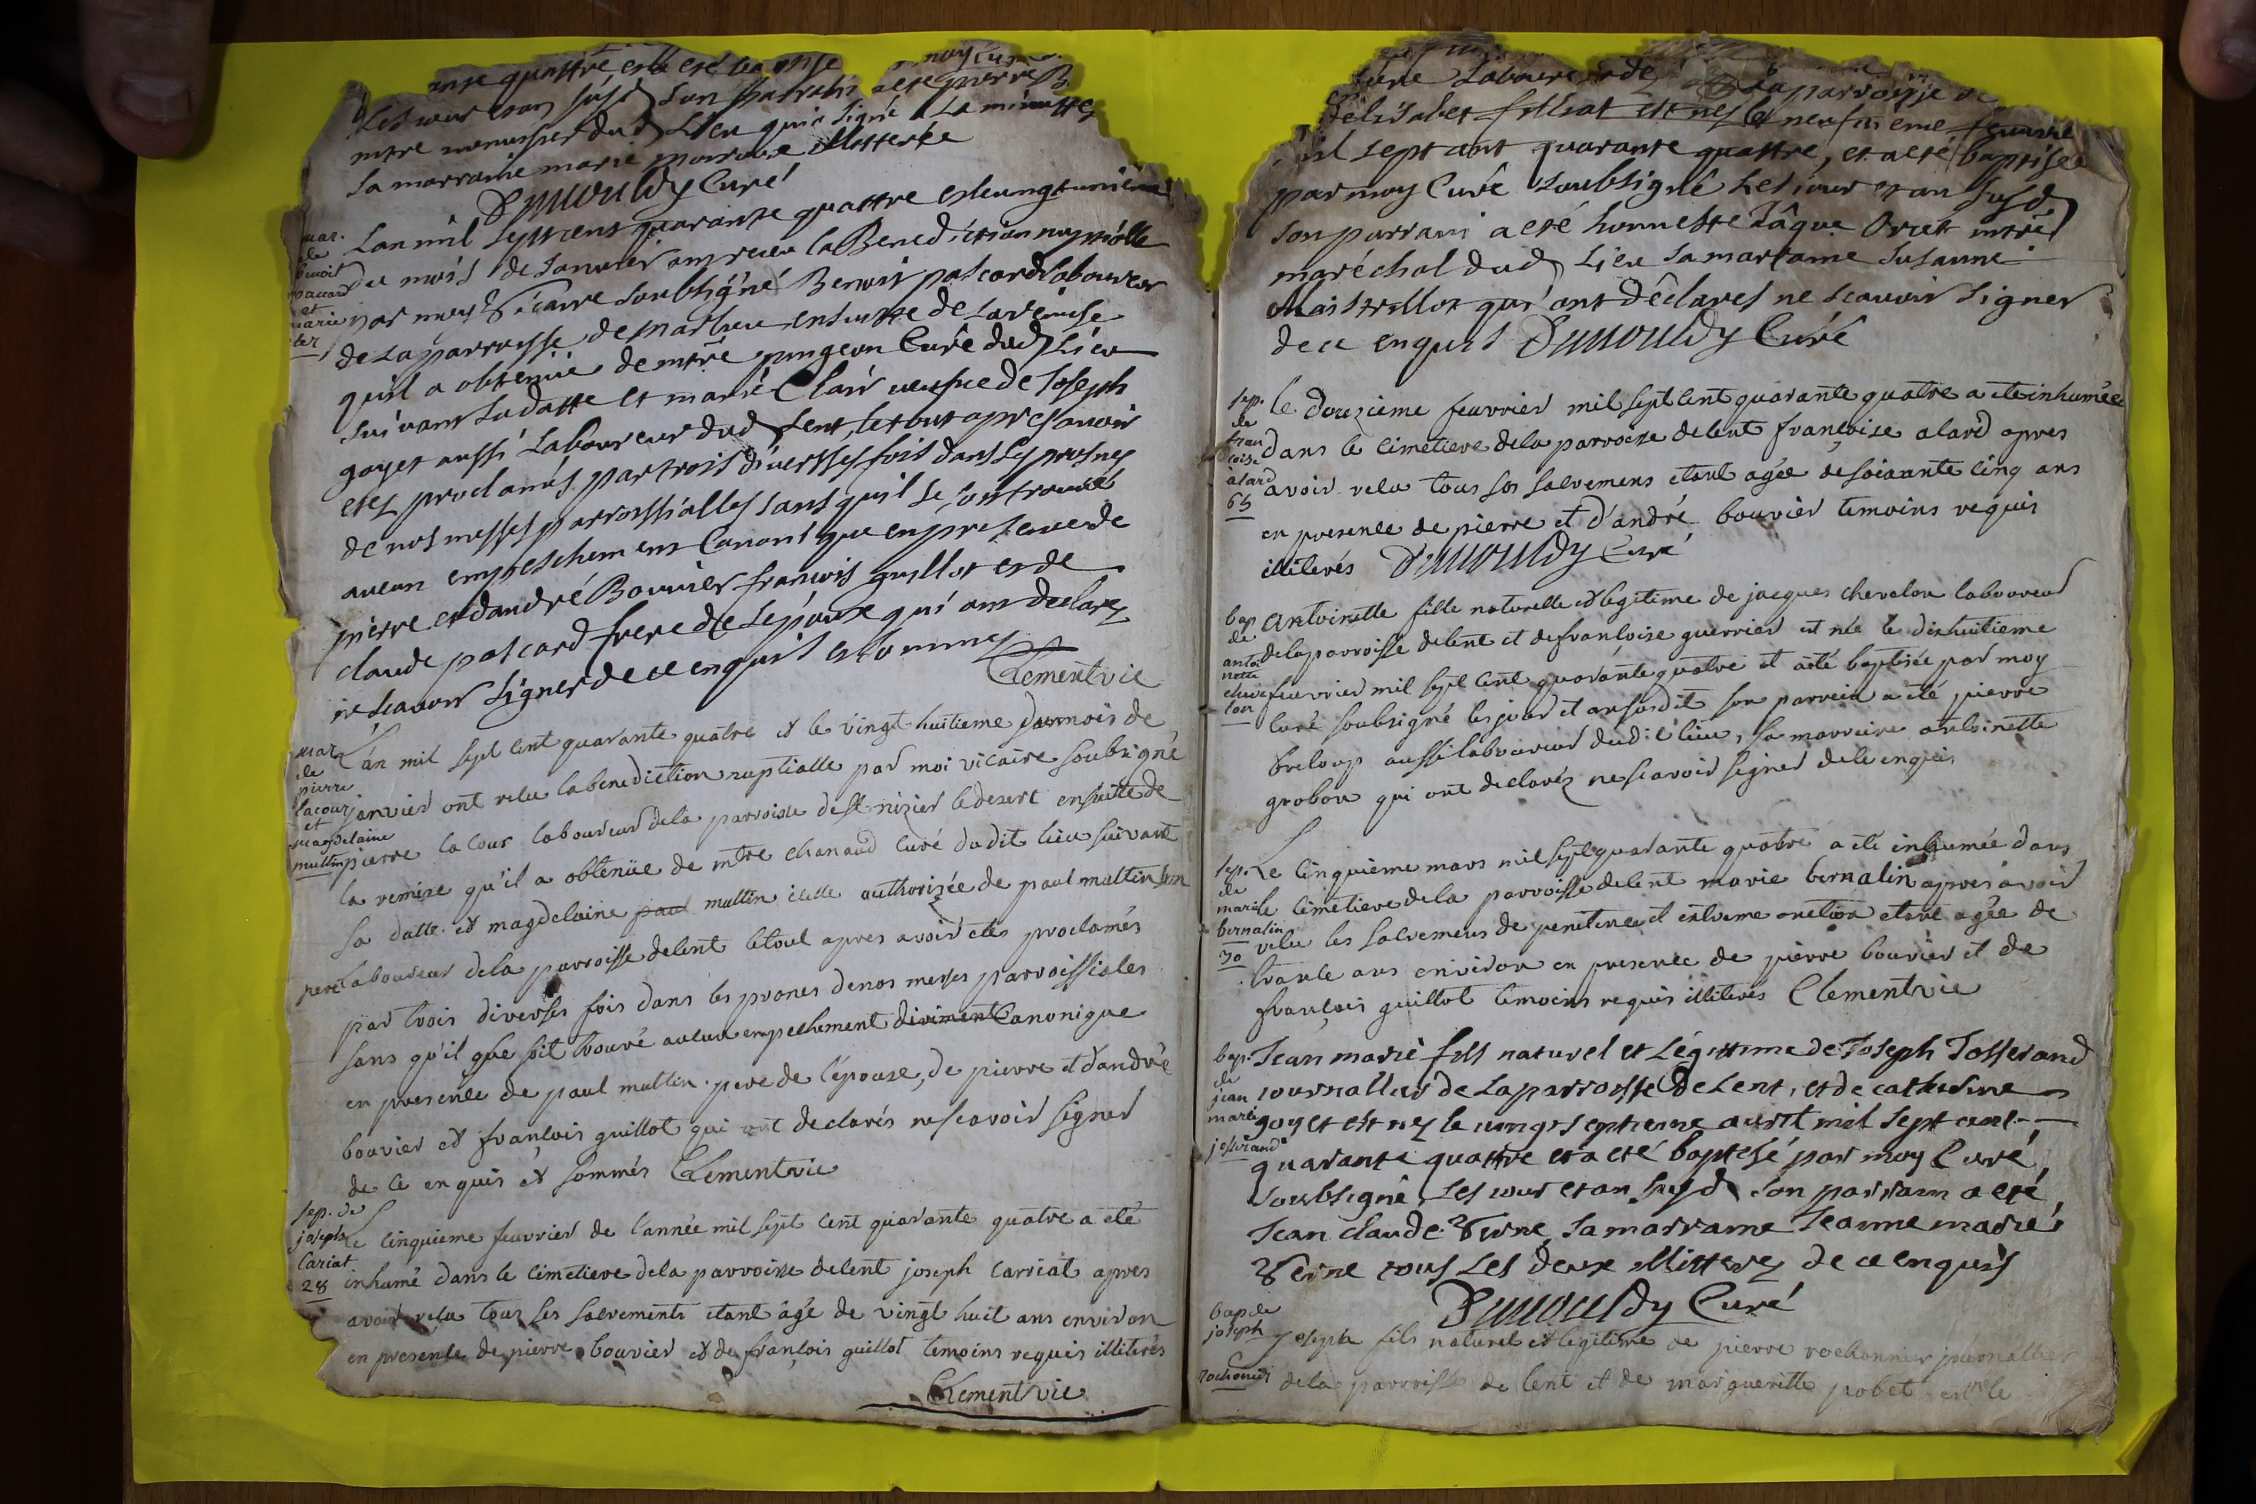 quattre
les jour et an susd son parrain a ete pierre
mtre menusier dud Lieu qui a signé La minutte
sa marraine marie illitterée
Dumouldy Curé
mar. de benoit pacard et marie cler
Lan mil sept cens quarante quattre et le ungt unieme
du mois de Janvier ont receu la Benediction nuptialle
par moy Vicaire soubsigné Benoit pascard Laboureur
de La parroisse de marlieu ensuitte de La remise
quil a obtenüe de mtre pingeon Curé dud Lieu
suivant sa datte et marie Clair veufve de Joseph
goyet aussi Laboureur dud Lent, le tout apres avoir
etez proclamés par trois diversses fois dans Les prosnes
de nos messes parroissialles sans quil se soit trouvé
aucun empeschement Canonique en presence de
pierre et dandré Bouvier francois guillot et de
claude pascard frere de L'epoux qui ont declarez
ne scavoir signer de ce enquis et sommes
Clement vic
mar de pierre lacour et magdelaine multin
L'an mil sept cent quarante quatre et le vingt huitieme du mois de
janvier ont recu la benediction nuptialle par moi vicaire soubsigné
pierre la cour laboureur de la parroisse de st nizier le desert ensuitte de
la remize qu'il a obtenüe de mtre chanaud curé dudit lieu suivant
sa datte et magdelaine paul multin icelle authorizée de paul multin son
pere laboureur de la parroisse de lent le tout apres avoir etés proclamés
par trois diverses fois dans les prones de nos messes parroissiales
sans qu'il se soit trouvé aucun empechement diriment Canonique
en presence de paul multin pere de l'epouze, de pierre et d'andré
bouvier et francois guillot qui ont declarés ne scavoir signer
de ce enquis et sommés Clement vic
sep. de joseph Cariat 28
Le cinquieme feuvrier de l'année mil sept cent quarante quatre a eté
inhumé dans le cimetiere de la parroisse de lent joseph carriat apres
avoir recu tous ses sacrements etant âgé de vingt huit ans environ
en presence de pierre bouvier et de francois guillot temoins requis illiterés
Clement vic
Laboureur de La parroisse de
d'elisabet filliat est nes le neufvieme feuvrier
mil sept cent quarante quattre, et a eté baptisée
par moy Curé soubsigné Les jour et an susd
son parrain a eté honneste Jâque mtre
maréchal dud Lieu sa marraine susanne
qui ont dêclarés ne scavoir signer
de ce enquis Dumouldy Curé
sep. de francoise alard 65
Le douzieme feuvrier mil sept cent quarante quatre a ete inhumée
dans le cimetiere de la parroisse de lent francoise alard apres
avoir recu tous ses sacremens etant agée de soixante cinq ans
en presence de pierre et d'andré bouvier temoins requis
illiterés Dumouldy Curé
bap de antoinette chevelon
antoinette fille naturelle et legitime de jacques chevelon laboureur
de la parroisse de lent et de francoise guerrier est née le dixhuitieme
feuvrier mil sept cent quarante quatre et a eté baptisée par moy
curé soubsigné les jour et an susdit son parrein a eté pierre
breloup aussi laboureur dudit lieu, sa marreine antoinette
grobon qui ont declarés ne scavoir signer de ce enquis
sep. de marie bernalin 30
Le cinquieme mars mil sept quarante quatre a eté inhumée dans
le cimetiere de la parroisse de lent marie bernalin apres avoir
recu les sacremens de penitence et extreme onction etant agée de
trante ans environ en presence de pierre bouvier et de
francois guillot temoins requis illiterés Clement vic
bap. de jean marie josserand
Jean marie fils naturel et Légittime de Joseph Josserand
journallier de La parroisse de Lent, et de catherine
goyet est nez le vingt septieme avril mil sept cent
quarante quattre et a eté baptisé par moy Curé
soubsigné Les jour et an susd son parrain a eté
Jean claude Verne sa marraine Jeanne marie
Verne tous Les deux illitterez de ce enquis
Dumouldy Curé
bap de joseph rochonier
joseph fils naturel et legitime de pierre rochonnier journallier
de la parroisse de lent et de margueritte pobet est né le